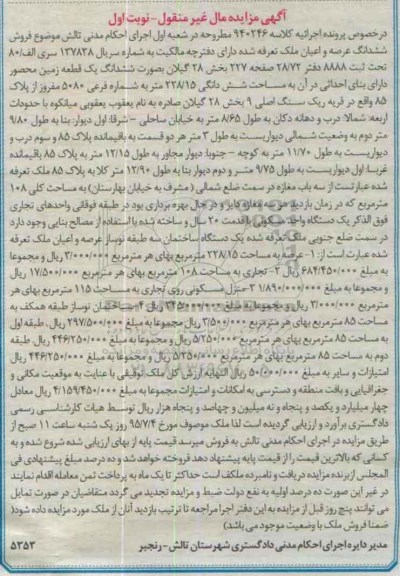 آگهی مزایده مال غیر منقول - نوبت اول
درخصوص پرونده اجرائیه کلاسه ۹۴۰۲۴۶ مطروحه در شعبه اول اجرای احکام مدنی تالش موضوع فروش
ششدانگ عرصه و اعیان ملک تعرفه شده دارای دفترچه مالکیت به شماره سریال ۱۳۷۸۳۸ سری الف/۸۰
تحت ثبت ۸۸۸۸ دفتر ۲۸/۷۲ صفحه ۲۲۷ بخش ۲۸ گیلان بصورت ششدانگ یک قطعه زمین محصور
دارای بنای احداثی در آن به مساحت شش دانگی ۲۲۸/۱۵ متر به شماره فرعی ۵۰۸۰ مفروز از پلاک
۸۵ واقع در قریه ریک سنگ اصلی ۹ بخش ۲۸ گیلان صادره به نام یعقوب یعقوبی میانکوه با حدودات
اربعه: شمالا: درب و دهانه دکان به طول ۸/۶۵ متر به خیابان ساحلی - شرقا: اول دیوار: بنا به طول ۹/۸۰
متر دوم به وضعیت شمالی دیواریست به طول ۳ متر هر دو قسمت به باقیمانده پلاک ۸۵ و سوم درب و
دیواریست به طول ۱۱/۷۰ متر به کوچه - جنوبا: دیوار مجاور به طول ۱۲/۱۵ متر به پلاک ۸۵ باقیمانده
غربا: اول دیواریست به طول ۹/۷۵ متر و دوم دیوار بنا به طول ۱۲/۹۰ متر کلا به پلاک ۸۵ ملک تعرفه
شده عبارتست از سه باب مغازه در سمت ضلع شمالی (مشرف به خیابان بهارستان) به مساحت کلی ۱۰۸
مترمربع که در زمان بازدید هر سه مغازه دایر و در حال بهره برداری بود در طبقه فوقانی واحدهای تجاری
فوق الذکر یک دستگاه واحد مسکونی با قدمت ۲۰ سال و ساخته شده با استفاده از مصالح بنایی وجود دارد
در سمت ضلع جنوبی ملک تعرفه شده یک دستگاه ساختمان سه طبقه نوساز عرصه و اعیان ملک تعرفه
شده عبارت است از: ۱- عرصه به مساحت ۲۲۸/۱۵ مترمربع بهای هر مترمربع ۳/۰۰۰/۰۰۰ ریال و مجموعا
به مبلغ ۶۸۴/۴۵۰/۰۰۰ ریال ۲- تجاری به مساحت ۱۰۸ مترمربع بهای هر مترمربع ۱۷/۵۰۰/۰۰۰ ریال
و مجموعا به مبلغ ۱/۸۹۰/۰۰۰/۰۰۰ ۳- منزل مسکونی روی تجاری به مساحت ۱۱۵ مترمربع بهای هر
مترمربع ۳/۰۰۰/۰۰۰ ریال و مجموعا به مبلغ ۳۴۵/۰۰۰/۰۰۰ ریال ۴- ساختمان نوساز طبقه همکف به
مساحت ۸۵ مترمربع بهای هر مترمربع ۳/۵۰۰/۰۰۰ ریال مجموعا به مبلغ ۲۹۷/۵۰۰/۰۰۰ ریال، طبقه اول
به مساحت ۸۵ مترمربع بهای هر مترمربع ۵/۲۵۰/۰۰۰ ریال و مجموعا به مبلغ ۴۴۶/۲۵۰/۰۰۰ ریال طبقه
دوم به مساحت ۸۵ مترمربع بهای هر مترمربع ۵/۲۵۰/۰۰۰ ریال و مجموعا به مبلغ ۴۴۶/۲۵۰/۰۰۰ ریال
امتیازات و سایر به مبلغ ۵۰/۰۰۰/۰۰۰ ریال النهایه ارزش کل ملک توقیفی با عنایت به موقعیت مکانی و
جغرافیایی و بافت منطقه و دسترسی به امکانات و امتیازات مجموعا به مبلغ ۴/۱۵۹/۴۵۰/۰۰۰ ریال معادل
چهار میلیارد و یکصد و پنجاه و نه میلیون و چهارصد و پنجاه هزار ریال توسط هیات کارشناسی رسمی
دادگستری برآورد و ارزیابی گردیده است لذا ملک موصوف مورخ ۹۵/۷/۴ روز یک شنبه ساعت ۱۱ صبح از
طریق مزایده در اجرای احکام مدنی تالش به فروش میرسد قیمت پایه از بهای ارزیابی شده شروع شده و به
کسانی که بالاترین قیمت را از قیمت پایه پیشنهاد دهد فروخته خواهد شد و ده درصد مبلغ پیشنهادی فی
المجلس از برنده مزایده دریافت و نامبرده مکلف است حداکثر تا یک ماه به پرداخت ثمن معامله اقدام نمایند
در غیر این صورت ده درصد اولیه به نفع دولت ضبط و مزایده تجدید می گردد متقاضیان در صورت تمایل
می توانند پنج روز قبل از مزایده به این دفتر اجرا مراجعه تا ترتیب بازدید آنان از ملک مورد مزایده داده شود(
ضمنا فروش ملک با وضعیت موجود می باشد)
مدیر دایره اجرای احکام مدنی دادگستری شهرستان تالش - رنجبر ۵۳۵۳